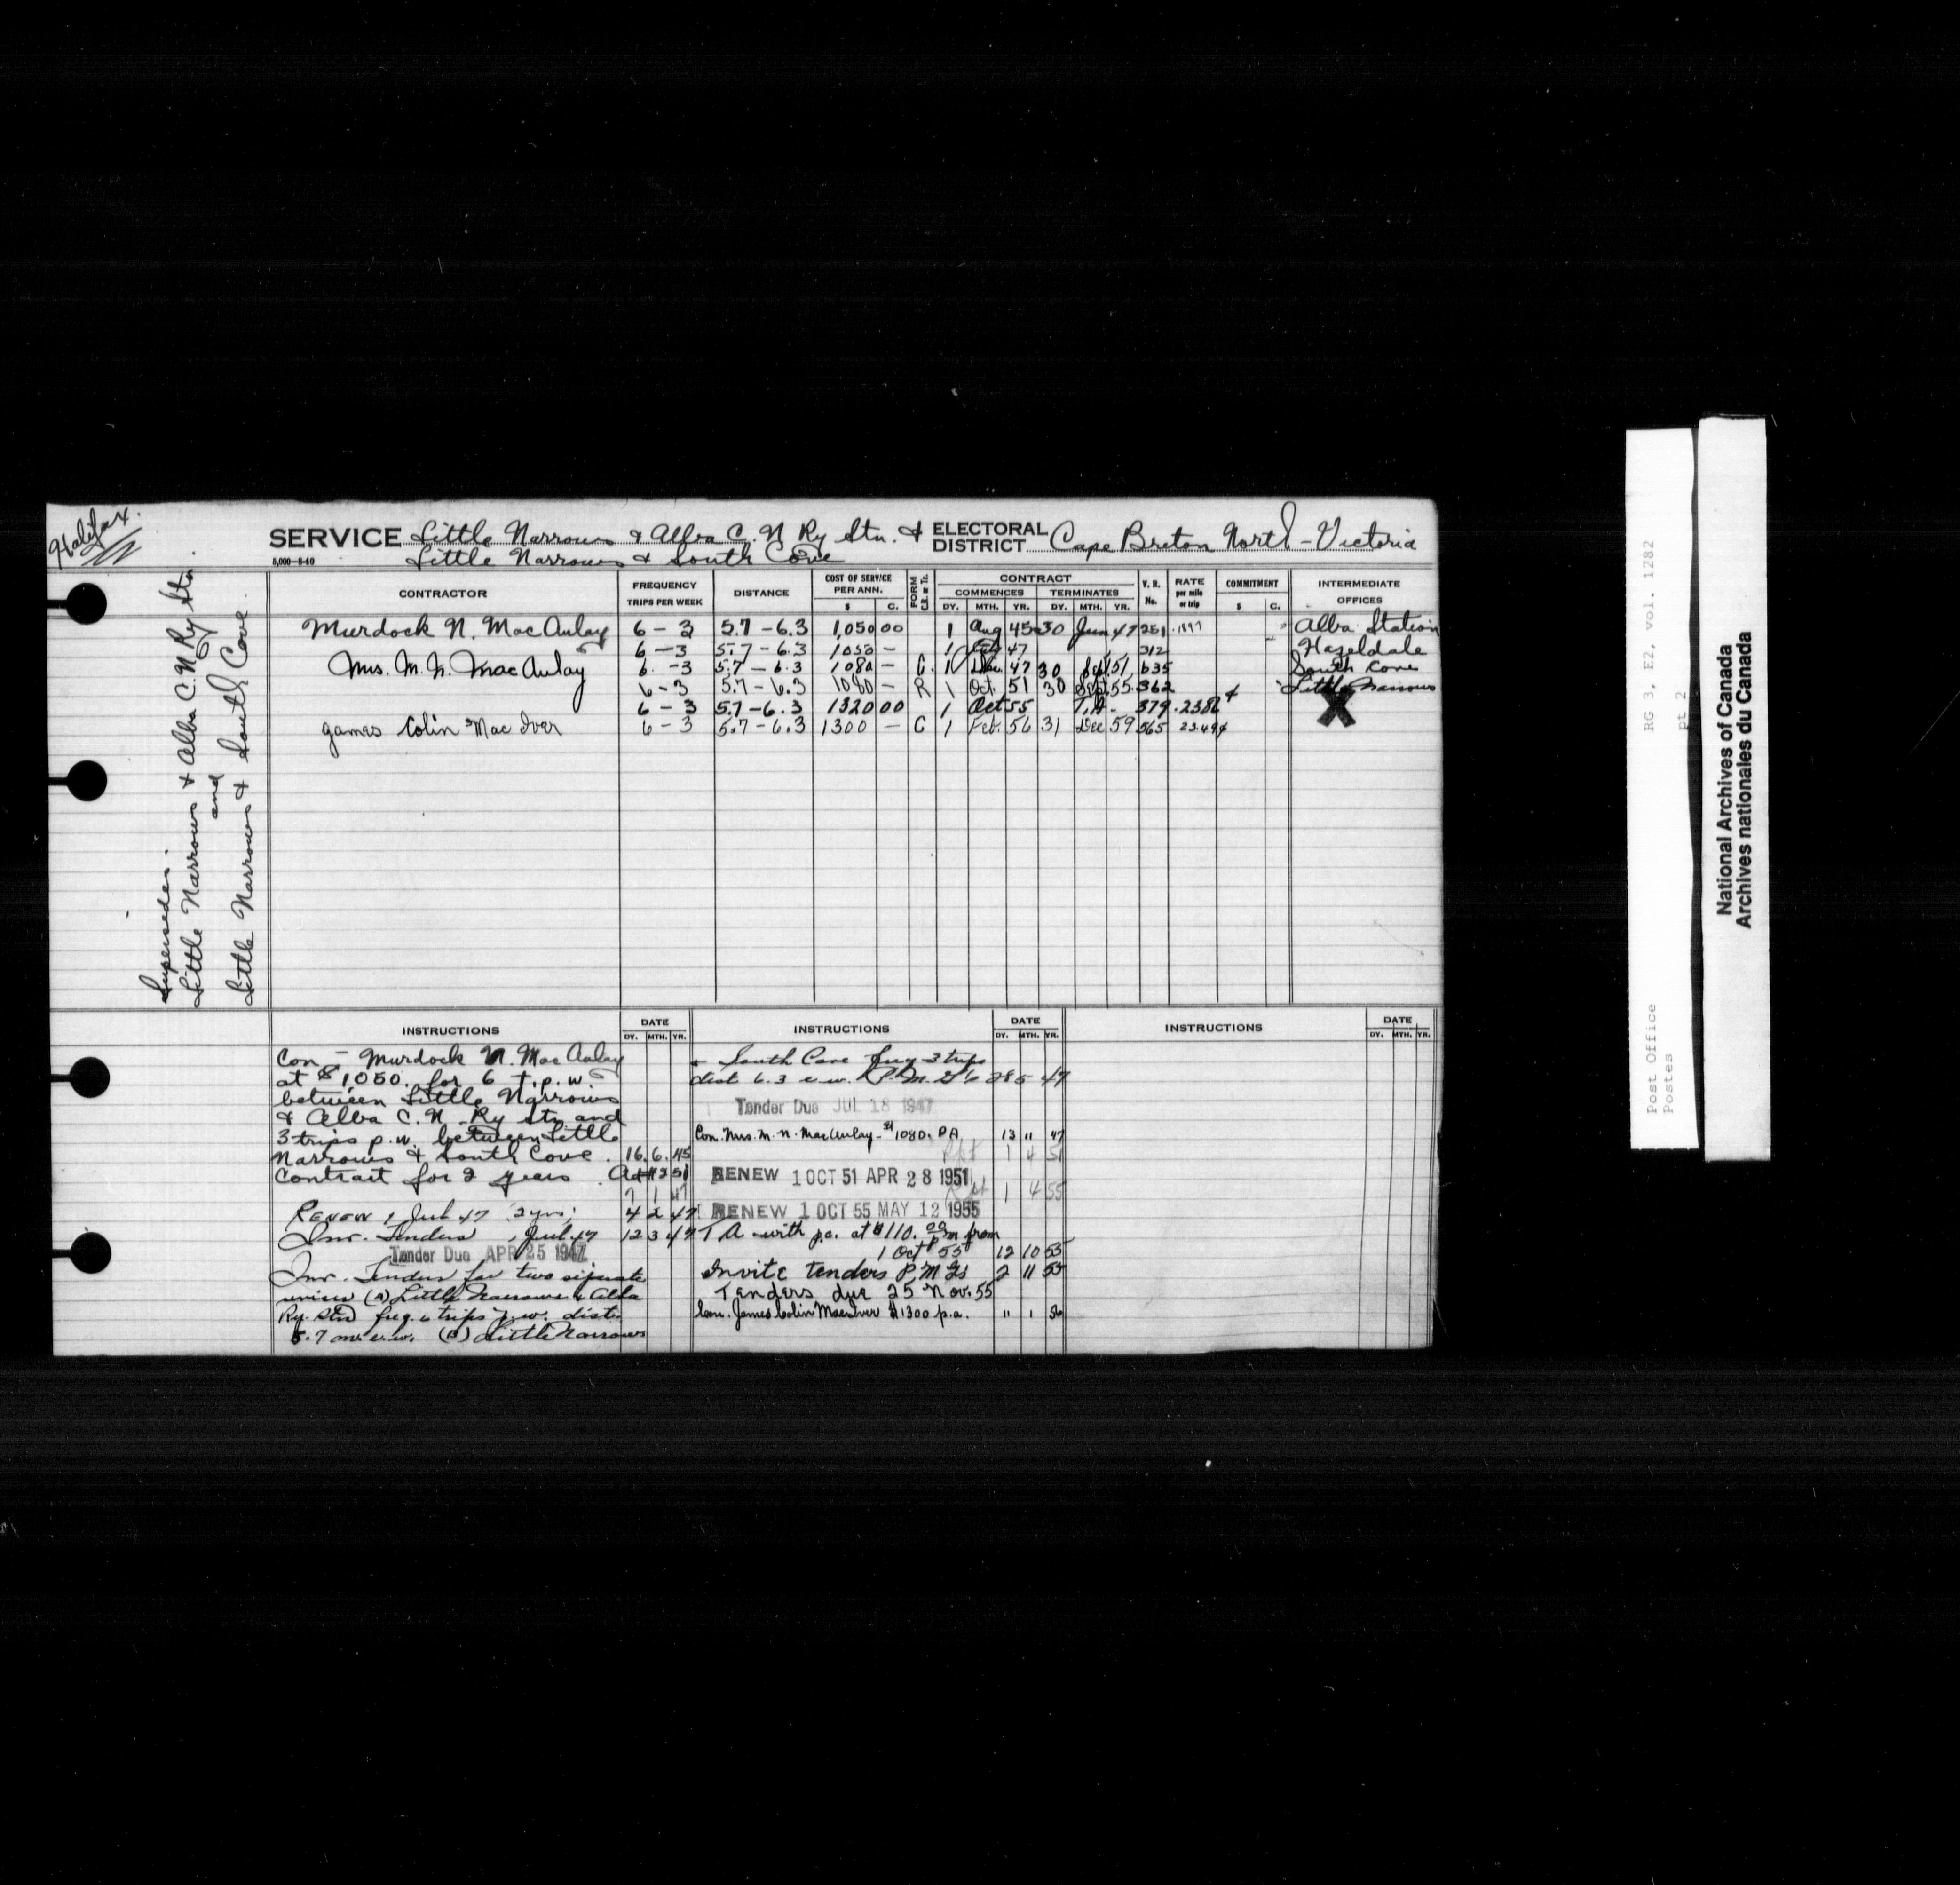 Halifax.
SERVICE Little Narrows & Alba C. N Ry Stn. &
Little Narrows & South Cove
ELECTORAL DISTRICT Cape Breton North - Victoria
5,000-8-40
Supersedes.
Little Narrows & Alba C. N Ry Stn.
and
Little Narrows & South Cove.
CONTRACTOR
FREQUENCY TRIPS PER WEEK
DISTANCE
COST OF SERVICE PER ANN. $ C.
FORM
CONTRACT
COMMENCES DY. MTH. YR.
TERMINATES DY. MTH. YR.
V. R. No.
RATE per mile or trip
COMMITMENT $ C.
INTERMEDIATE OFFICES
Murdock N. MacAulay 6 - 3 5.7 - 6.3 1,050 00 1 Aug 45 30 Jun 47 251 .1897 Alba Station
6 - 3 5.7 - 6.3 1050 - 1 47 312 Hazeldale
Mrs. M. N. MacAulay 6 - 3 5.7 - 6.3 1080 - C. 1 47 30 Sept 51 635 South Cove
6 - 3 5.7 - 6.3 1080 - R 1 Oct. 51 30 Sept 55 362 Little Narrows
6 - 3 5.7 - 6.3 1320 00 1 Oct 55 T.A. 379 .2386 X
James Colin MacIver 6 - 3 5.7 - 6.3 1300 - C 1 Feb. 56 31 Dec 59 565 23.49¢
INSTRUCTIONS DATE DY. MTH. YR.
Con - Murdock N. MacAulay
at $1,050. for 6 t.p.w.
between Little Narrows
& Alba C. N. Ry Stn. and
3 trips p.w. between Little
Narrows & South Cove. 16. 6. 45
Contract for 2 years.
7 1 47
RENEW 1 Jul 47 2 yrs; 4 2 47
Inv. Tenders 1 Jul 47 12 3 47
Tender Due APR 25 1947
Inv. Tenders for two separate
services (A) Little Narrows & Alba
Ry. Stn freq. 6 trips p.w. dist.
5.7 mi. e.w. (B) Little Narrows
INSTRUCTIONS DATE DY. MTH. YR.
& South Cove freq 3 trips
dist 6.3 e.w. 28 5 47
Tender Due JUL 18 1947
Con. Mrs. M. N. MacAulay - $1080. P.A. 13 11 47
Rpt 1 4 51
RENEW 1 OCT 51 APR 28 1951
Rpt 1 4 55
RENEW 1 OCT 55 MAY 12 1955
T A with p.a. at $110.00 p m from
1 Oct 55 12 10 55
Invite tenders P.M Gs 2 11 55
Tenders due 25 Nov. 55
Con. James Colin MacIver $1300 p.a. 11 1 56
INSTRUCTIONS DATE DY. MTH. YR.
Post Office
Postes
RG 3, E2, vol. 1282
pt 2
National Archives of Canada
Archives nationales du Canada